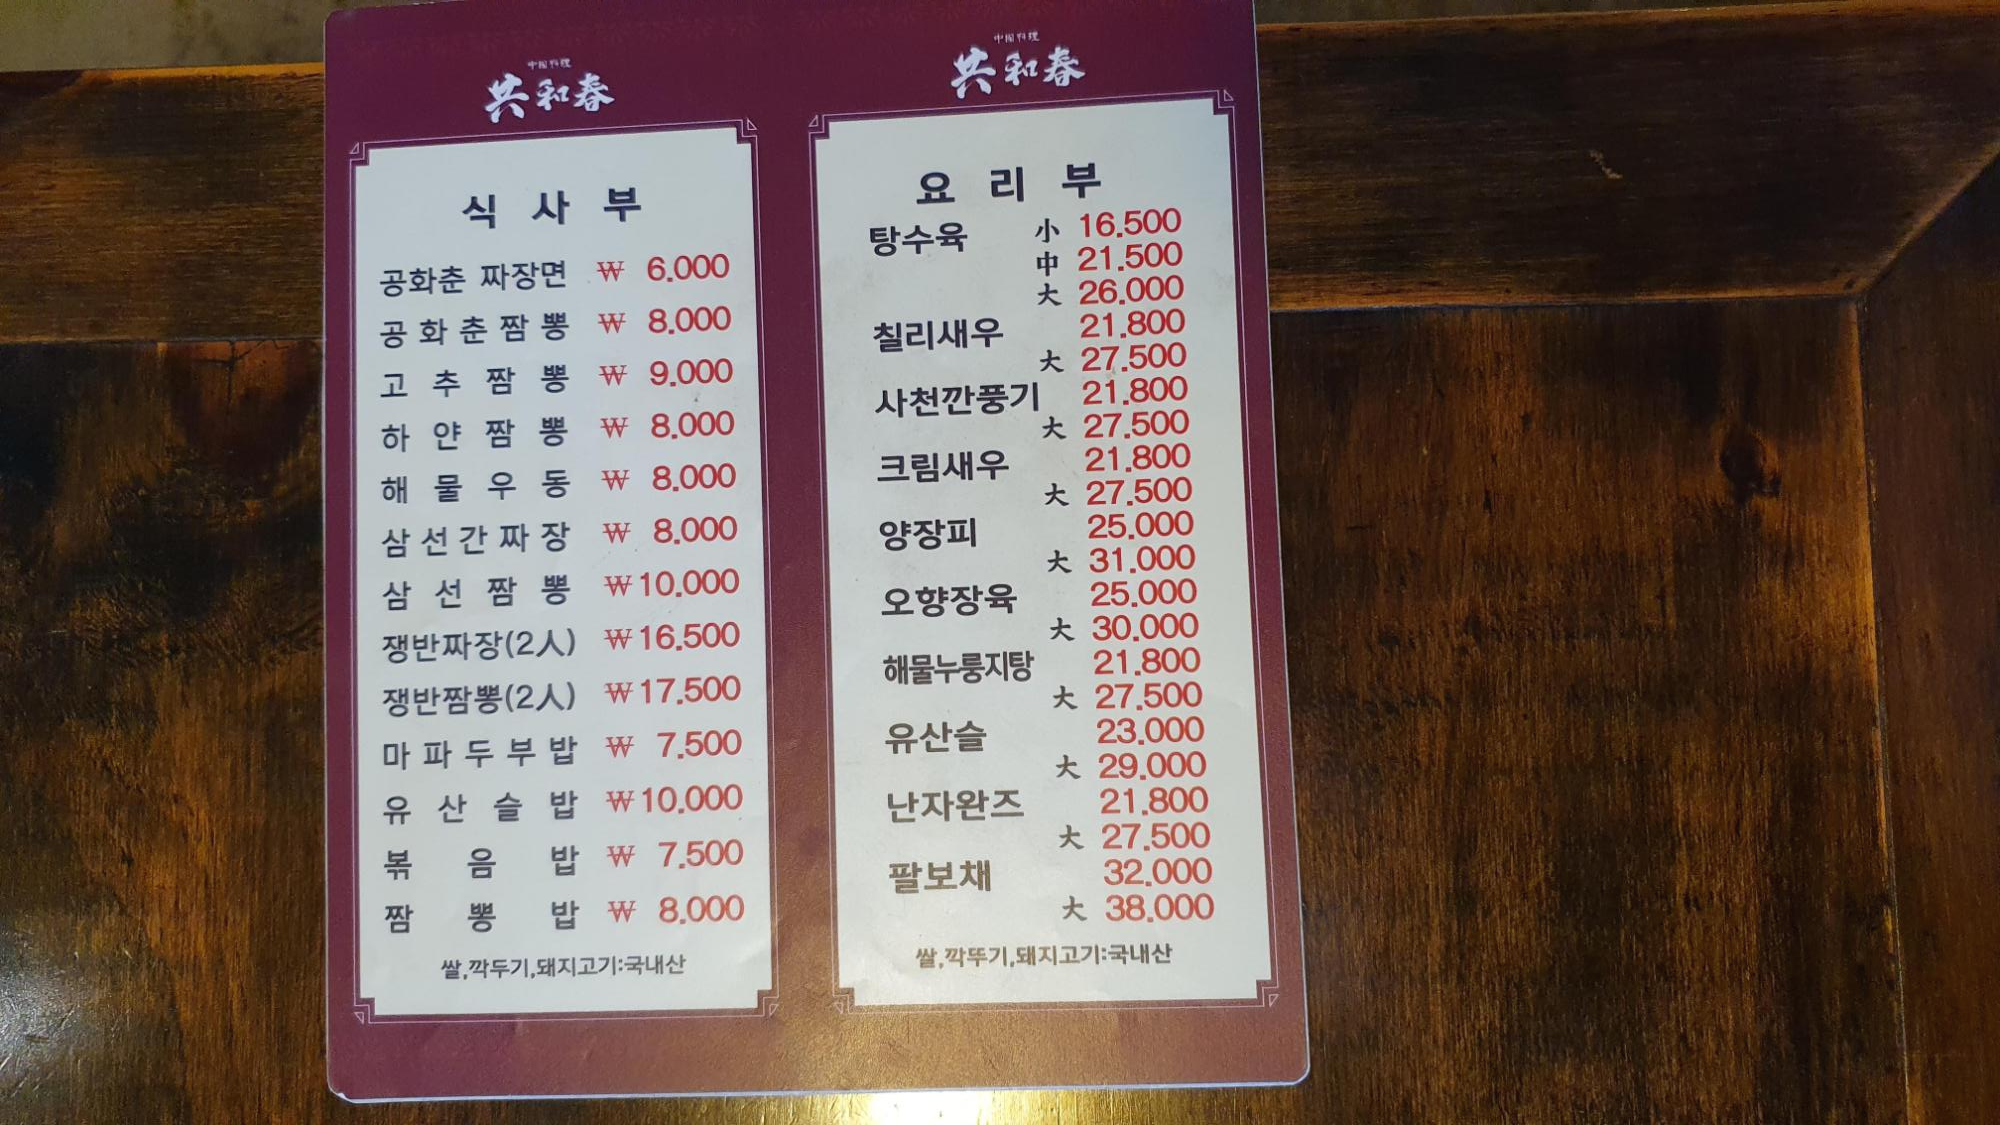 中国料理
共和春
식사부
공화춘 짜장면 ₩ 6.000
공화춘짬뽕 ₩ 8.000
고추짬뽕 ₩ 9.000
하얀짬뽕 ₩ 8.000
해물우동 ₩ 8.000
삼선간짜장 ₩ 8.000
삼선짬뽕 ₩10.000
쟁반짜장(2人) ₩16.500
쟁반짬뽕(2人) ₩17.500
마파두부밥 ₩ 7.500
유산슬밥 ₩10.000
볶음밥 ₩ 7.500
짬뽕밥 ₩ 8.000
쌀,깍두기,돼지고기:국내산
中国料理
共和春
요리부
탕수육 小 16.500
中 21.500
大 26.000
칠리새우 21.800
大 27.500
사천깐풍기 21.800
大 27.500
크림새우 21.800
大 27.500
양장피 25.000
大 31.000
오향장육 25.000
大 30.000
해물누룽지탕 21.800
大 27.500
유산슬 23.000
大 29.000
난자완즈 21.800
大 27.500
팔보채 32.000
大 38.000
쌀,깍뚜기,돼지고기:국내산